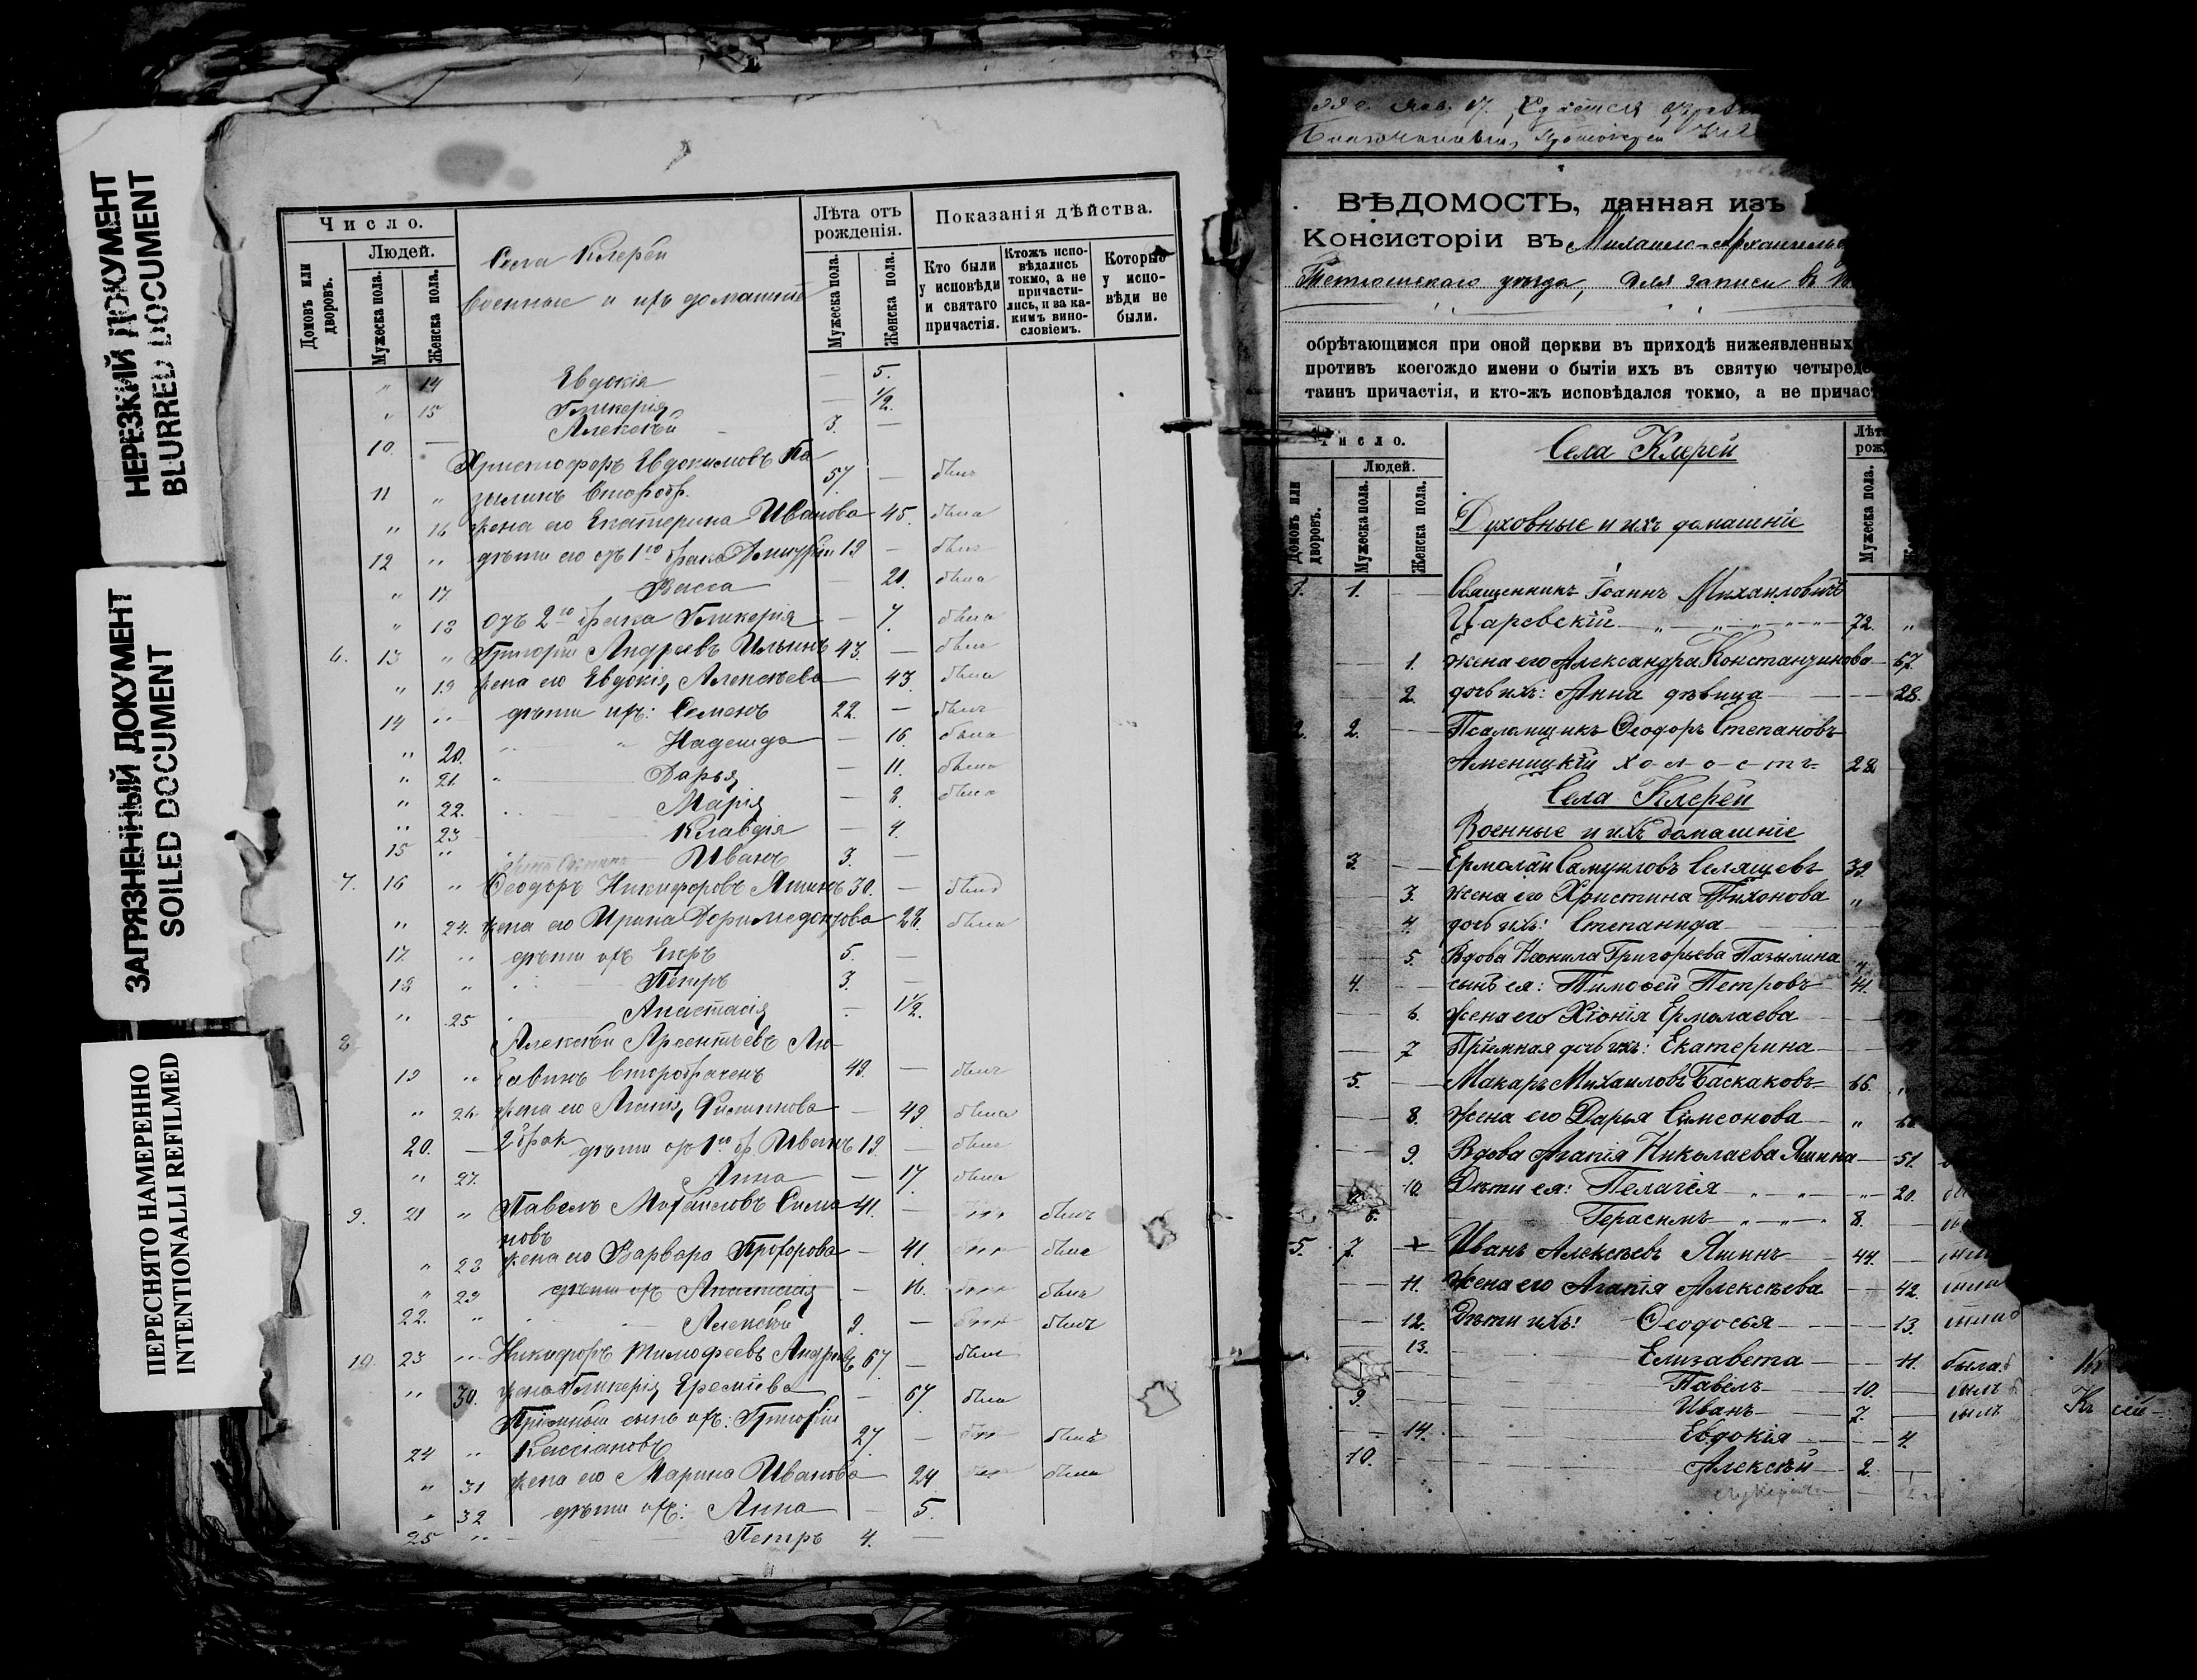 НЕРЕЗКИЙ ДОКУМЕНТ
BLURRED DOCUMENT
ЗАГРЯЗНЕННЫЙ ДОКУМЕНТ
SOILED DOCUMENT
ПЕРЕСНЯТО НАМЕРЕННО
INTENTIONALLI REFILMED
Число.
Людей.
Домовъ или дворовъ.
Мужеска пола.
Женска пола.
Села Клерей
военные и ихъ домашніе
Лѣта отъ рожденія.
Мужеска пола.
Женска пола.
Показанія дѣйства.
Кто были у исповѣди и святаго причастія.
Ктожъ исповѣдались токмо, а не причастились, и за какимъ винословіемъ.
Которые у исповѣди не были.
" 14 Евдокія — 5.
" 15 Гликерія — 1/2.
10. — Алексѣй 3. —
Христофоръ Евдокимовъ Па
11 " зылинъ второбр. 57. — былъ
" 16 жена его Екатерина Иванова 45. была
12 " дѣти его отъ 1го брака Димитрій 19 — былъ
" 17. Васса — 20. была
" 18 отъ 2го брака Гликерія — 7. была
6. 13 " Григорій Андреевъ Ильинъ 43. — былъ
" 19 жена его Евдокія Алексѣева 43. была
14 " дѣти ихъ: Семенъ 22. — былъ
" 20. " Надежда — 16. была
" 21. " Дарья — 11. была
" 22. Марія — 8. была
" 23 Клавдія — 4.
15 " Иванъ 3. —
7. 16 " Ѳеодоръ Никифоровъ Яшинъ 30. — былъ
" 24. жена его Ирина Доримедонтова 28. была
17. " дѣти ихъ Егоръ 5. —
18 " Петръ 3. —
" 25 Анастасія — 1 1/2.
8 Алексѣй Арсентьевъ Лю-
19 " бавинъ второбраченъ 49. — былъ
" 26 жена его Агапія Филиппова — 49 была
20. — 2 брак дѣти отъ 1го бр. Иванъ 19. — былъ
" 27. Анна — 17. была
9. 21 " Павелъ Михайловъ Сима 41. — былъ
новъ
" 28 жена его Варвара Прохорова — 41. была
" 29 дѣти ихъ Анастасія — 16. была
22. " Алексѣй 9. — былъ
10. 23 " Никифоръ Тимофеевъ Андреевъ 67. — былъ
" 30. жена Гликерія Еремѣева — 67. была
Пріемный сынъ ихъ: Григорій
24 " Кассіановъ 27. — былъ
" 31 жена его Марина Иванова 24 была
" 32 дѣти ихъ: Анна — 5.
25 " Петръ 4. —
ВѢДОМОСТЬ, данная изъ
Консисторіи въ Михаило-Архангельс
Тетюшскаго уѣзда, для записи въ
обрѣтающимся при оной церкви въ приходѣ нижеявленныхъ
противъ коегождо имени о бытіи ихъ въ святую четыреде
таинъ причастія, и кто-жъ исповѣдался токмо, а не причас
Число.
Людей.
Домовъ или дворовъ.
Мужеска пола.
Женска пола.
Села Клерей
Духовные и ихъ домашніе
Мужеска пола.
1. 1. — Священникъ Іоаннъ Михаиловичъ
Царевскій 72. "
— 1. жена его Александра Константинова — 67.
— 2. дочь ихъ: Анна дѣвица — 28.
2. 2. — Псаломщикъ Ѳеодоръ Степановъ
Аменицкій холостъ 28
Села Клерей
Военные и ихъ домашніе
3. — Ермолай Самуиловъ Селящевъ 39.
— 3. жена его Христина Тихонова "
— 4. дочь ихъ: Степанида
— 5. Вдова Неонила Григорьева Пазылина "
4. — сынъ ея: Тимоѳей Петровъ 41.
— 6. жена его Хіонія Ермолаева
— 7 Пріемная дочь ихъ: Екатерина
5. — Макаръ Михаиловъ Баскаковъ 66.
— 8. жена его Дарья Симеонова "
— 9. Вдова Агапія Николаева Яшина — 51.
— 10. Дѣти ея: Пелагія " 20.
6. Герасимъ 8. —
5. 7. + Иванъ Алексѣевъ Яшинъ 44. —
— 11. жена его Агапія Алексѣева — 42.
— 12. Дѣти ихъ: Ѳеодосья — 13.
— 13. Елизавета — 11. была
Павелъ 10. — былъ
9. Иванъ 7. — былъ
— 14. Евдокія — 4.
10. Алексѣй 2. —